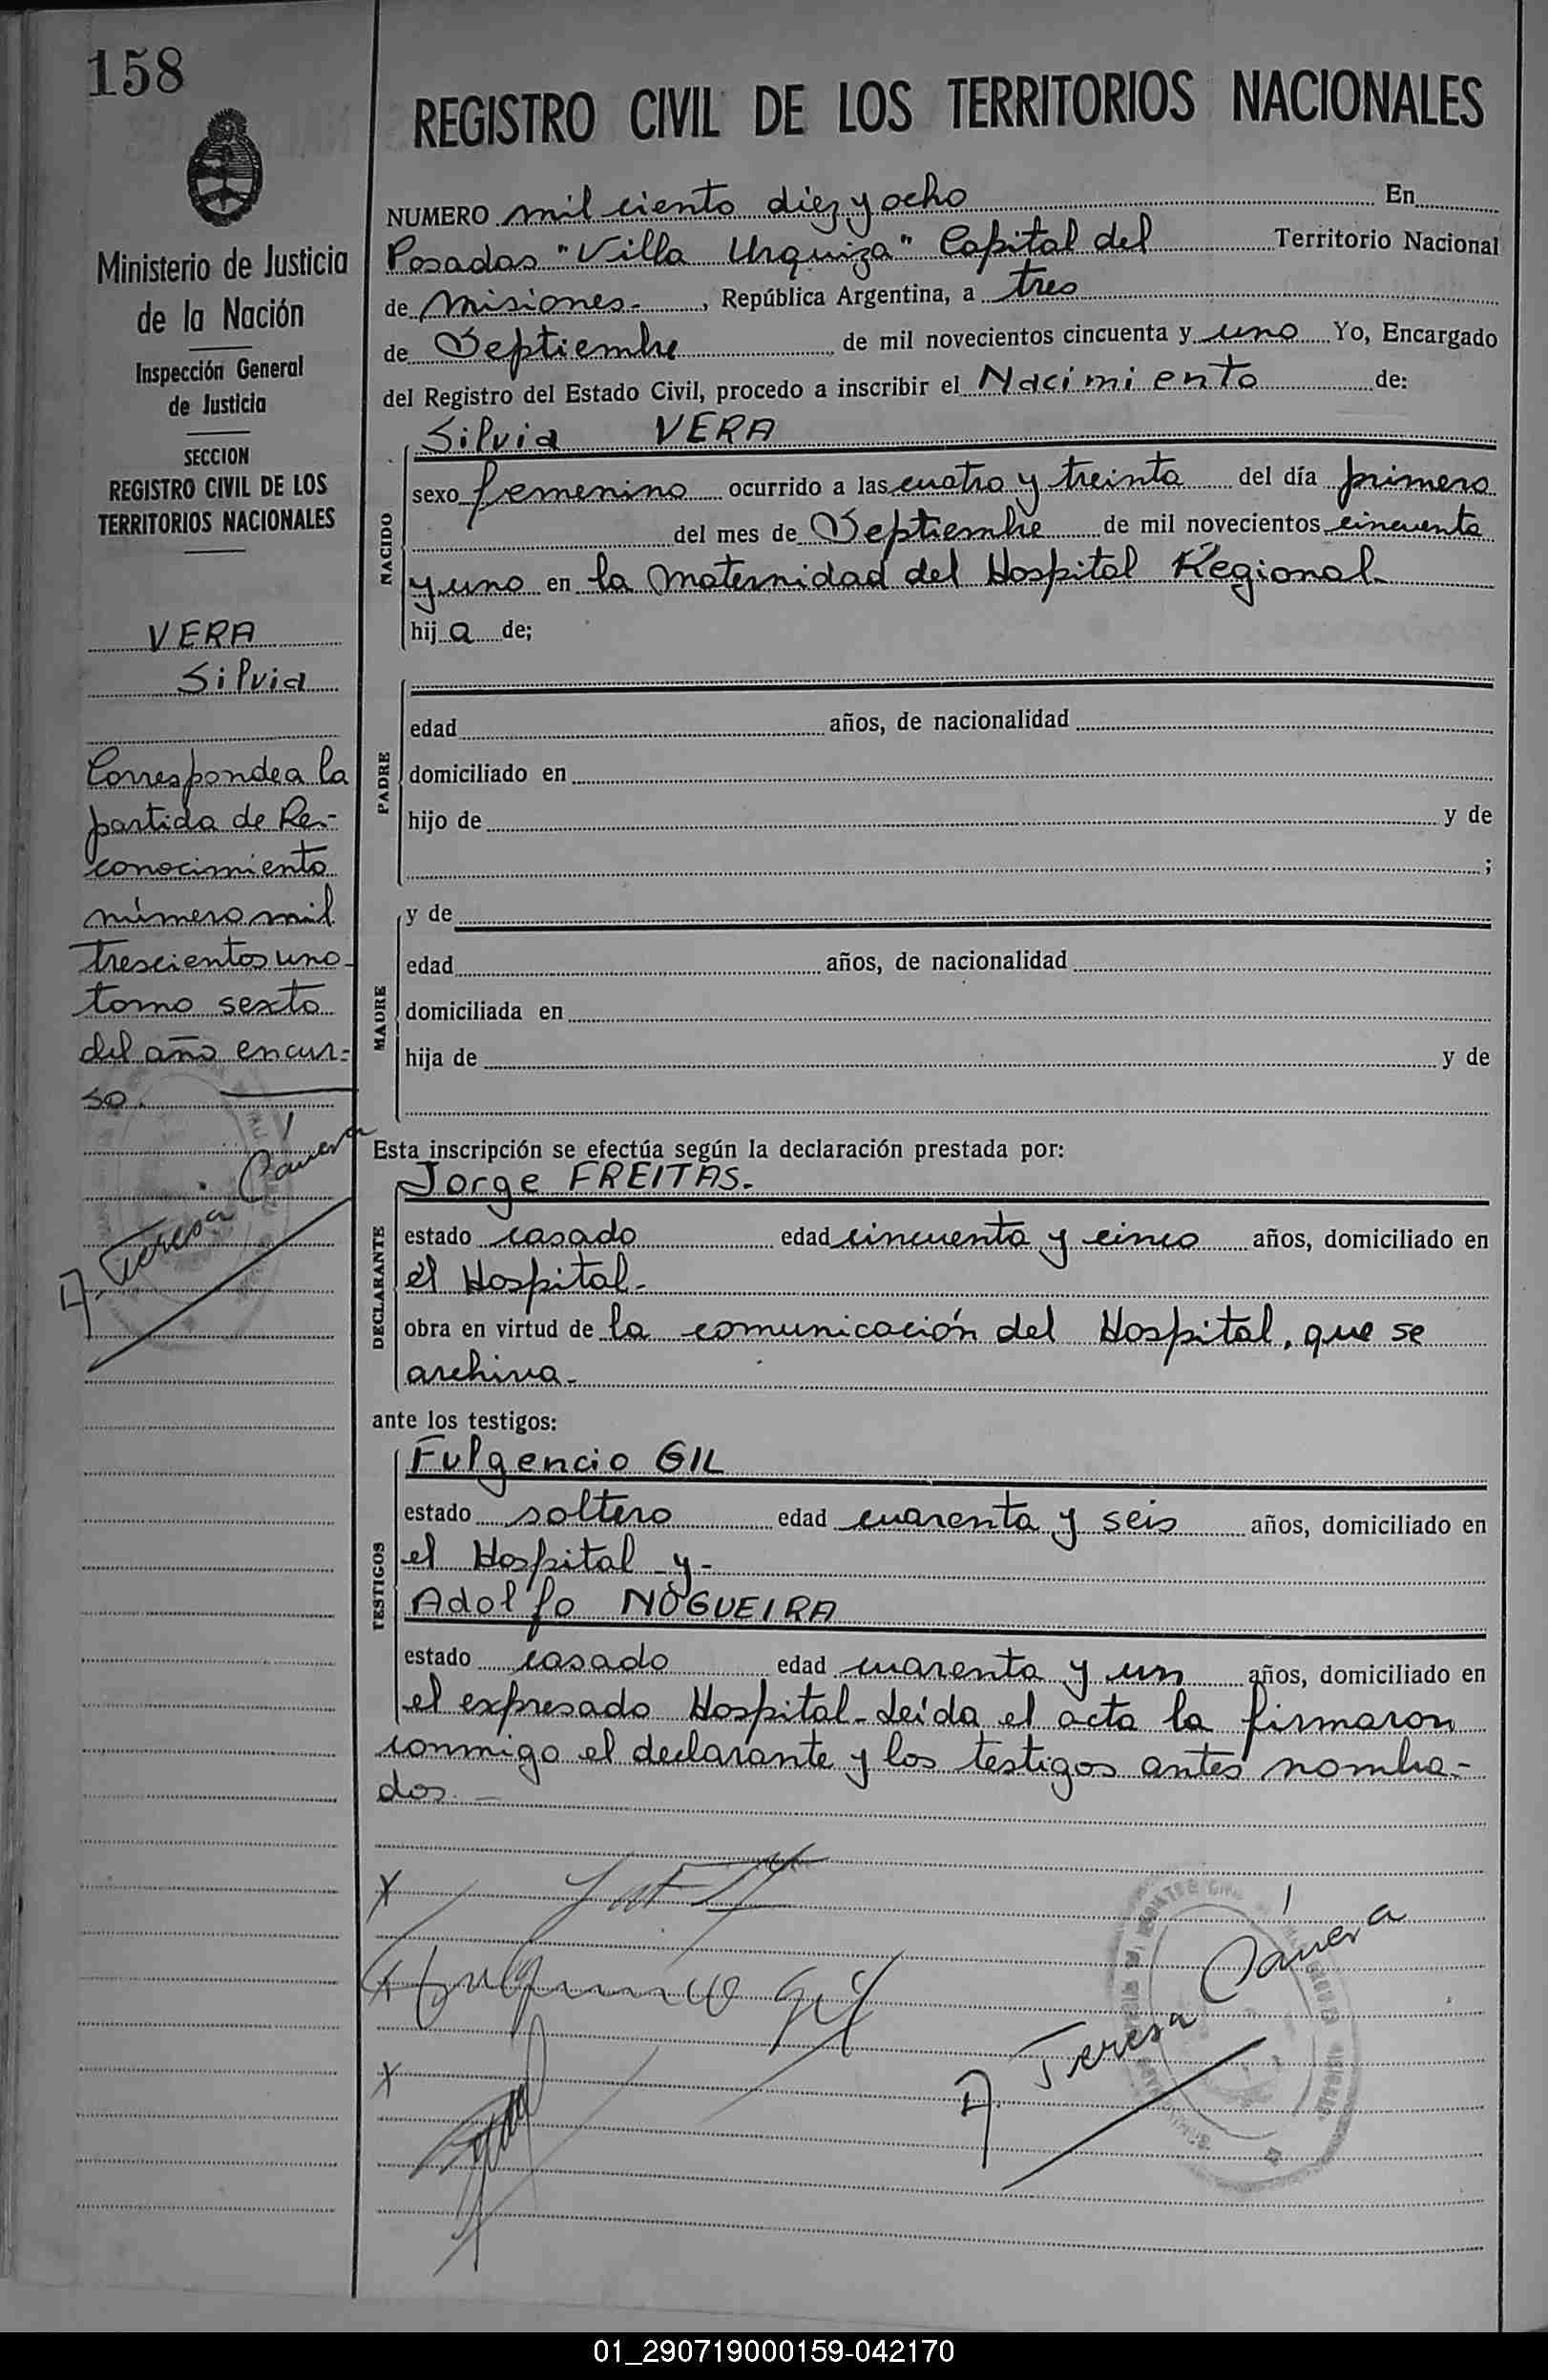 158
REGISTRO CIVIL DE LOS TERRITORIOS NACIONALES
Ministerio de Justicia
de la Nación
Inspección General
de Justicia
SECCION
REGISTRO CIVIL DE LOS
TERRITORIOS NACIONALES
VERA
Silvia
Corresponde a la
partida de Re-
conocimiento
número mil
trescientos uno-
tomo sexto
del año encur-
so.
A. Teresa
NUMERO mil ciento diez y ocho En
Posadas "Villa Urquiza" Capital del Territorio Nacional
de Misiones- , República Argentina, a tres
de Septiembre de mil novecientos cincuenta y uno Yo, Encargado
del Registro del Estado Civil, procedo a inscribir el Nacimiento de:
NACIDO
Silvia VERA
sexo femenino ocurrido a las cuatro y treinta del día primero
del mes de Septiembre de mil novecientos cincuenta
y uno en la Maternidad del Hospital Regional-
hij a de;
PADRE
edad años, de nacionalidad
domiciliado en
hijo de y de
;
MADRE
y de
edad años, de nacionalidad
domiciliada en
hija de y de
Esta inscripción se efectúa según la declaración prestada por:
DECLARANTE
Jorge FREITAS.-
estado casado edad cincuenta y cinco años, domiciliado en
el Hospital-
obra en virtud de la comunicación del Hospital, que se
archiva-
ante los testigos:
TESTIGOS
Fulgencio GIL
estado soltero edad cuarenta y seis años, domiciliado en
el Hospital y-
Adolfo NOGUEIRA
estado casado edad cuarenta y un años, domiciliado en
el expresado Hospital-Leída el acta la firmaron
conmigo el declarante y los testigos antes nombra-
dos.-
x
x Fulgencio Gil
x
A. Teresa
01_290719000159-042170